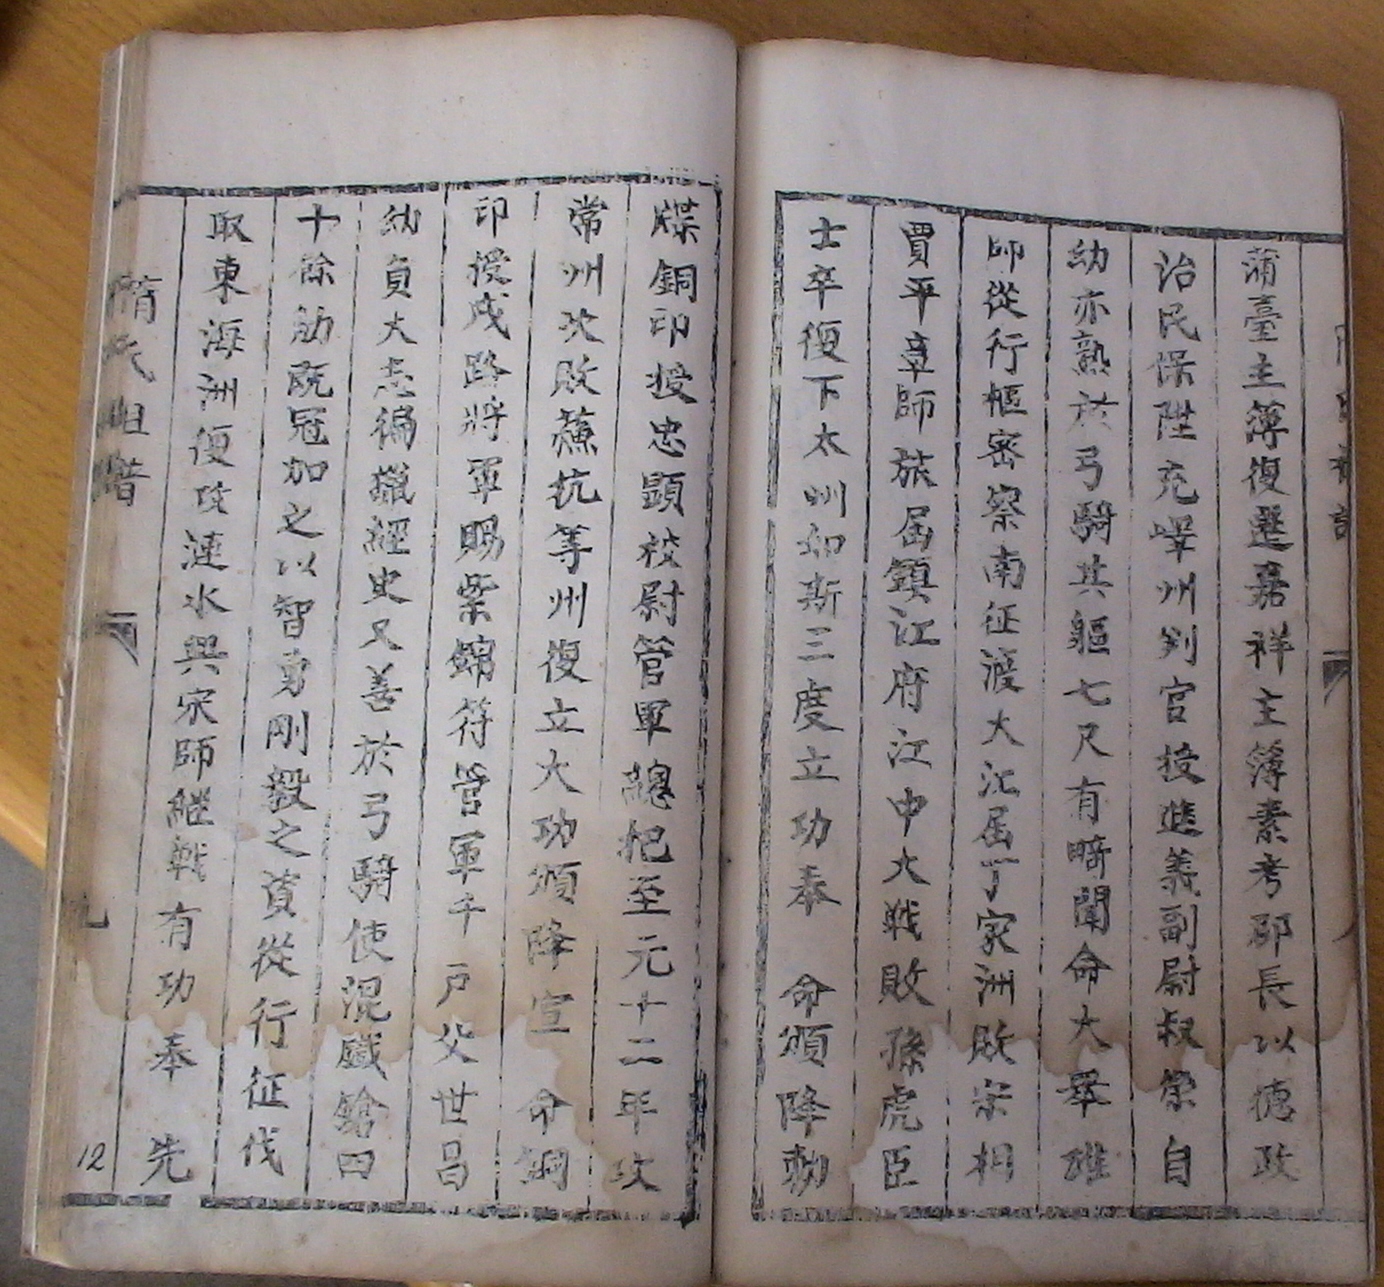 蒲臺主簿復選嘉祥主簿素考部長以德政
治民保陞充嶧州判官授進義副尉叔榮自
幼亦熟於弓騎其軀七尺有畸聞命大舉雄
師從行樞密察南征渡大江屆丁家洲敗宗相
賈平章師旅屆鎮江府江中大戦敗孫虎臣
士卒復下太州如斯三度立功奉 命頒降勅
牒銅印授忠顕校尉管軍總把至元十二年攻
常州次敗蘓杭等州復立大功頒降宣 命銅
印授成路將軍賜紫錦符管軍千戶父世昌
幼負大志徧獵經史又善於弓騎使混鐵鎗四
十餘觔既冠加之以智勇剛毅之資從行征伐
取東海洲便攻漣水與宋師継戦有功奉 先
隋氏祖譜
九
12